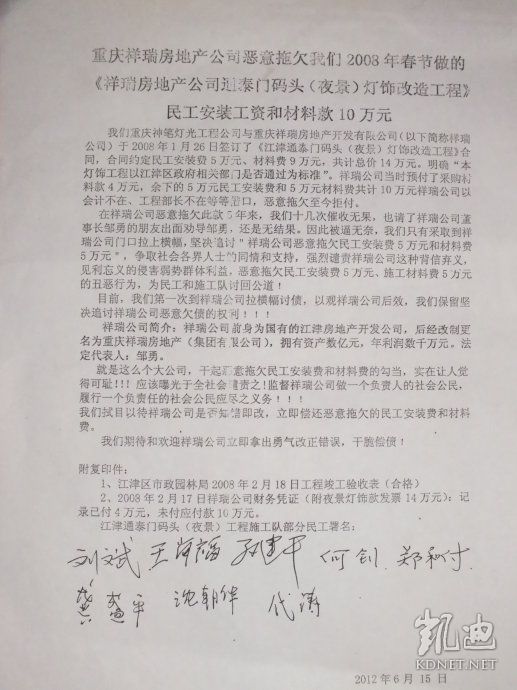 重庆祥瑞房地产公司恶意拖欠我们2008年春节做的
《祥瑞房地产公司通泰门码头（夜景）灯饰改造工程》
民工安装工资和材料款10万元
我们重庆神笔灯光工程公司与重庆祥瑞房地产开发有限公司（以下简称祥瑞
公司）于2008年1月26日签订了《江津通泰门码头（夜景）灯饰改造工程》合
同，合同约定民工安装费5万元、材料费9万元，共计总价14万元。明确“本
灯饰工程以江津区政府相关部门是否通过为标准”。祥瑞公司当时预付了采购材
料款4万元，余下的5万元民工安装费和5万元材料费共计10万元祥瑞公司以
会计不在、工程部长不在等等借口，恶意拖欠至今拒付。
在祥瑞公司恶意拖欠此款5年来，我们十几次催收无果，也请了祥瑞公司董
事长邹勇的朋友出面劝导邹勇，还是无结果。因此被逼无奈，我们只有采取到祥
瑞公司门口拉上横幅，坚决追讨“祥瑞公司恶意拖欠民工安装费5万元和材料费
5万元”，争取社会各界人士的同情和支持，强烈谴责祥瑞公司这种背信弃义，
见利忘义的侵害弱势群体利益，恶意拖欠民工安装费5万元、施工材料费5万元
的丑恶行为，为民工和施工队讨回公道！
目前，我们第一次到祥瑞公司拉横幅讨债，以观祥瑞公司后效，我们保留坚
决追讨祥瑞公司恶意欠债的权利！！！
祥瑞公司简介：祥瑞公司前身为国有的江津房地产开发公司，后经改制更
名为重庆祥瑞房地产（集团有限公司），拥有资产数亿元，年利润数千万元。法
定代表人：邹勇。
就是这么个大公司，干起恶意拖欠民工安装费和材料费的勾当，实在让人觉
得可耻!!!应该曝光于全社会谴责之!监督祥瑞公司做一个负责人的社会公民，
履行一个负责任的社会公民应尽之义务！！！
我们拭目以待祥瑞公司是否知错即改，立即偿还恶意拖欠的民工安装费和材料
费。
我们期待和欢迎祥瑞公司立即拿出勇气改正错误，干脆偿债！
附复印件：
1、江津区市政园林局2008年2月18日工程竣工验收表（合格）
2、2008年2月17日祥瑞公司财务凭证（附夜景灯饰款发票14万元）：记
录已付4万元，未付应付款10万元。
江津通泰门码头（夜景）工程施工队部分民工署名：
刘文斌 孙建平 何创 郑和才
平 沈朝华 代涛
凯迪
KDNET.NET
2012年6月15日